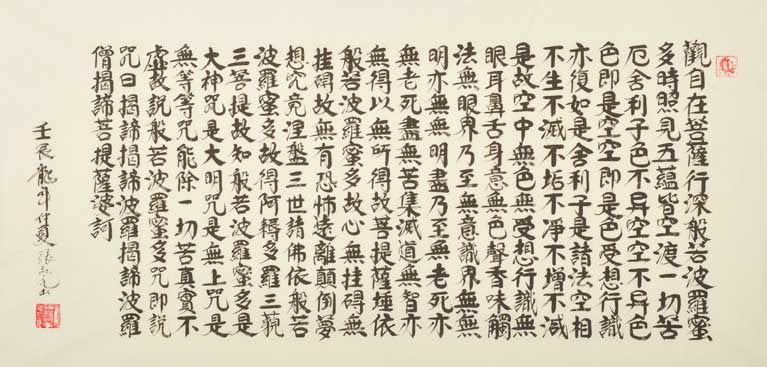 觀自在菩薩行深般若波羅蜜
多時照見五蘊皆空渡一切苦
厄舍利子色不异空空不异色
色即是空空即是色受想行識
亦復如是舍利子是諸法空相
不生不滅不垢不凈不增不減
是故空中無色無受想行識無
眼耳鼻舌身意無色聲香味觸
法無眼界乃至無意識界無無
明亦無無明盡乃至無老死亦
無老死盡無苦集滅道無智亦
無得以無所得故菩提薩埵依
般若波羅蜜多故心無挂碍無
挂碍故無有恐怖遠離顛倒夢
想究竟涅盤三世諸佛依般若
波羅蜜多故得阿耨多羅三藐
三菩提故知般若波羅蜜多是
大神咒是大明咒是無上咒是
無等等咒能除一切苦真實不
虛故說般若波羅蜜多咒即說
咒曰揭諦揭諦波羅揭諦波羅
僧揭諦菩提薩婆訶
壬辰龍年仲夏張